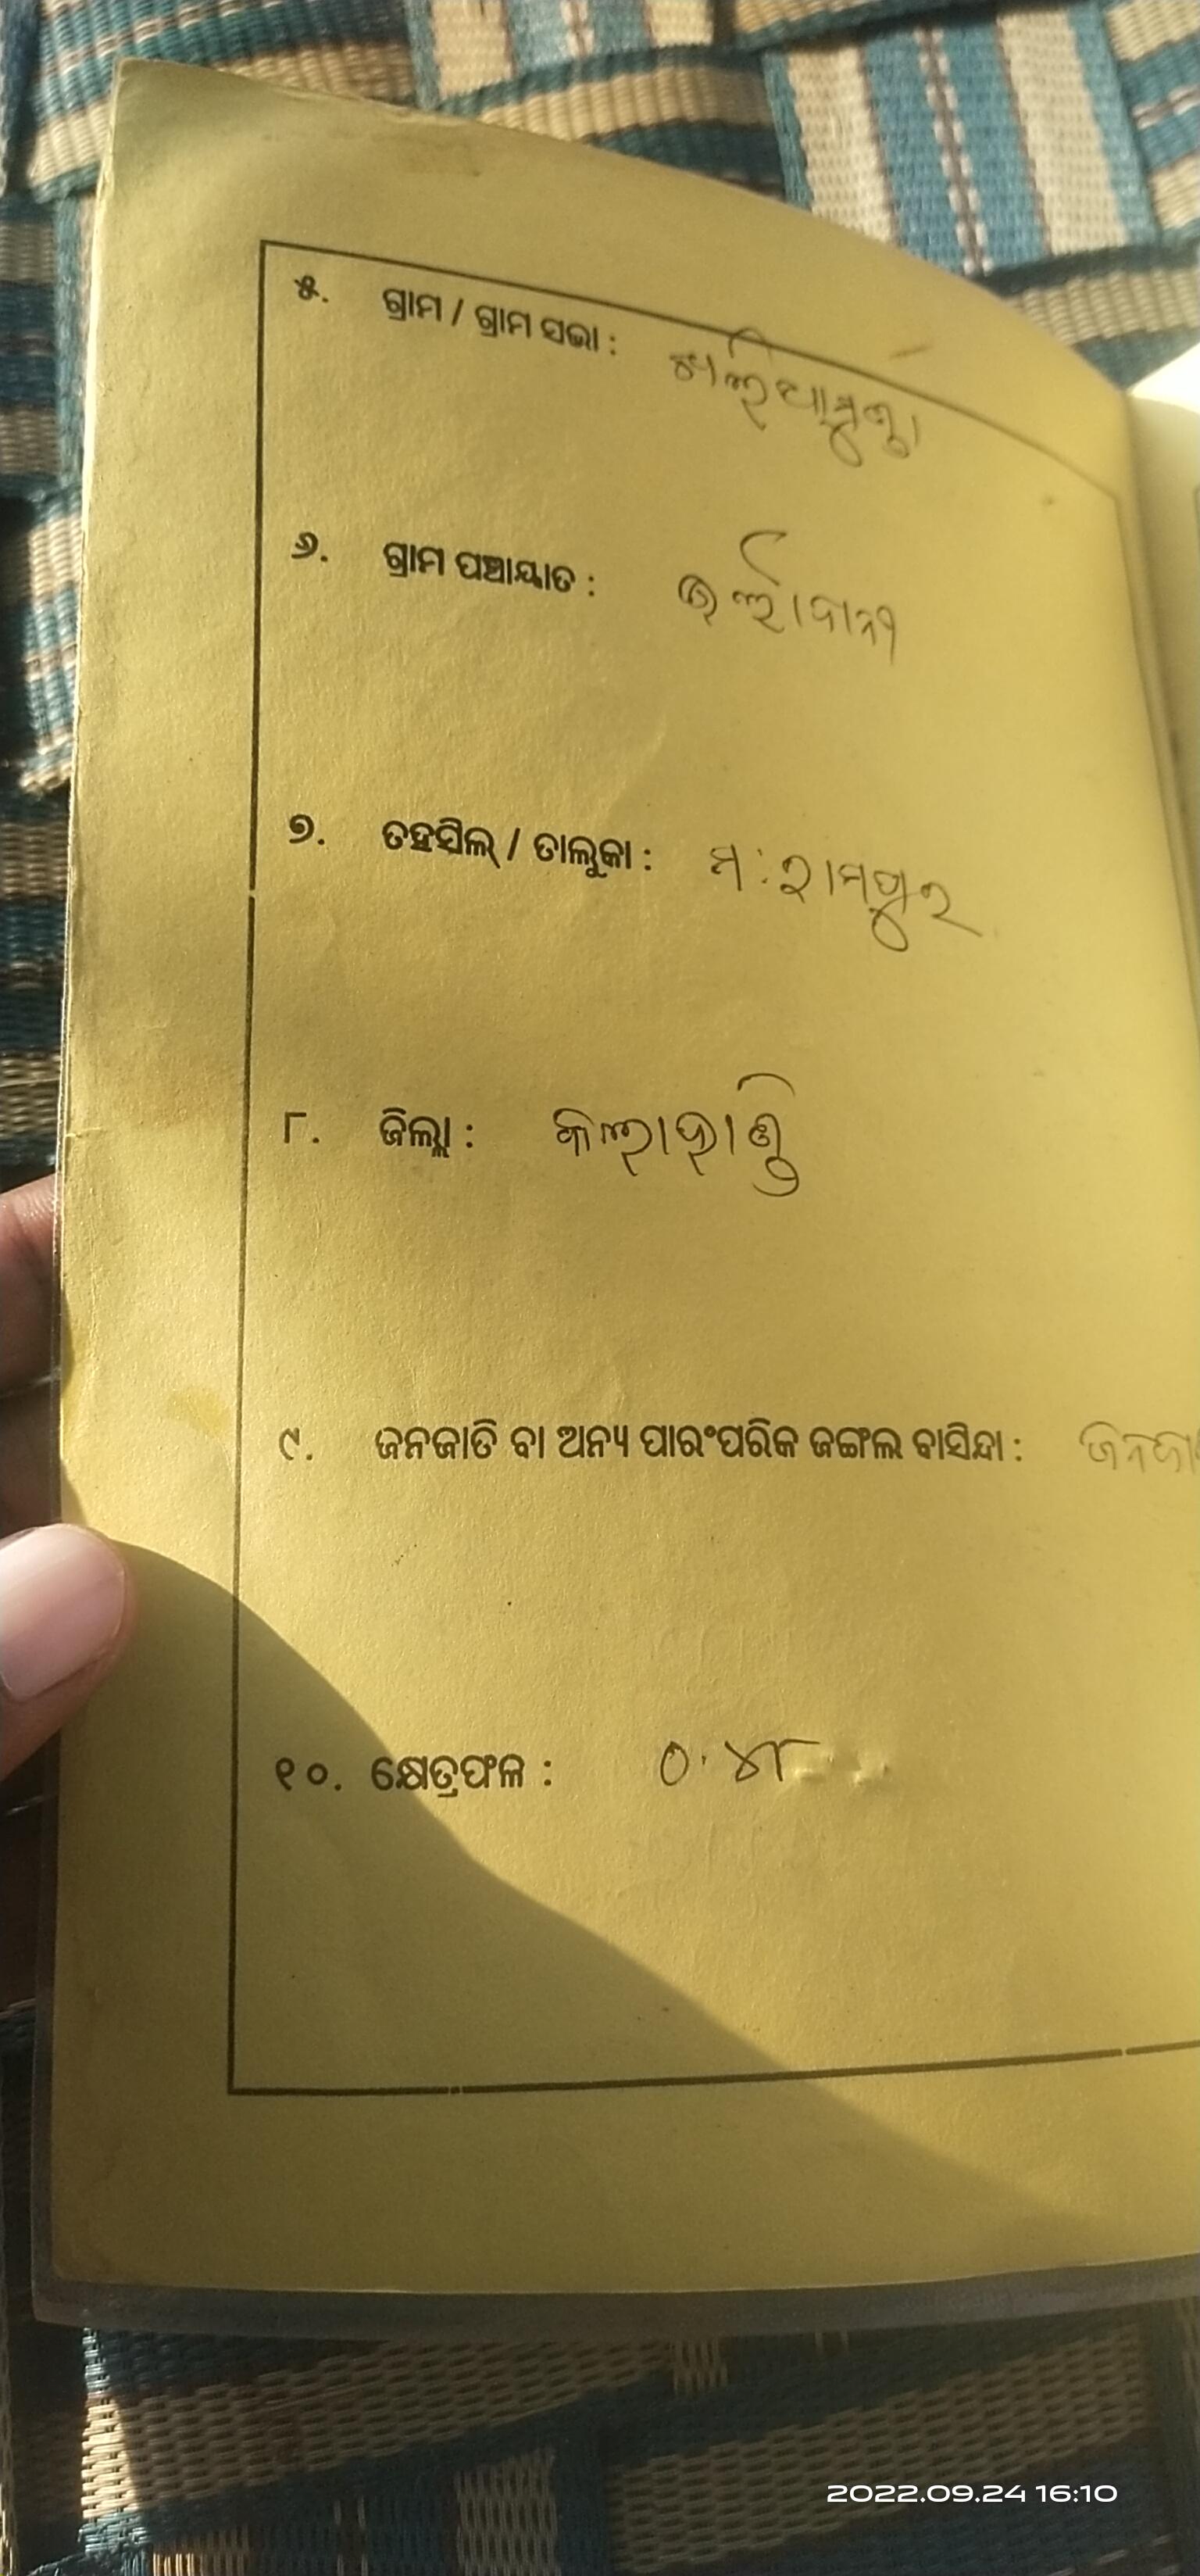 ୫. ଗ୍ରାମ / ଗ୍ରାମ ସଭା :
୬. ଗ୍ରାମ ପଞ୍ଚାୟାତ :
୭. ତହସିଲ୍ / ତାଲୁକା : ମ:ରାମପୁର
୮. ଜିଲ୍ଲା : କଲାହାଣ୍ଡି
୯. ଜନଜାତି ବା ଅନ୍ୟ ପାରଂପରିକ ଜଙ୍ଗଲ ବାସିନ୍ଦା : ଜନଜା
୧୦. କ୍ଷେତ୍ରଫଳ : ୦.୪୮
2022.09.24 16:10